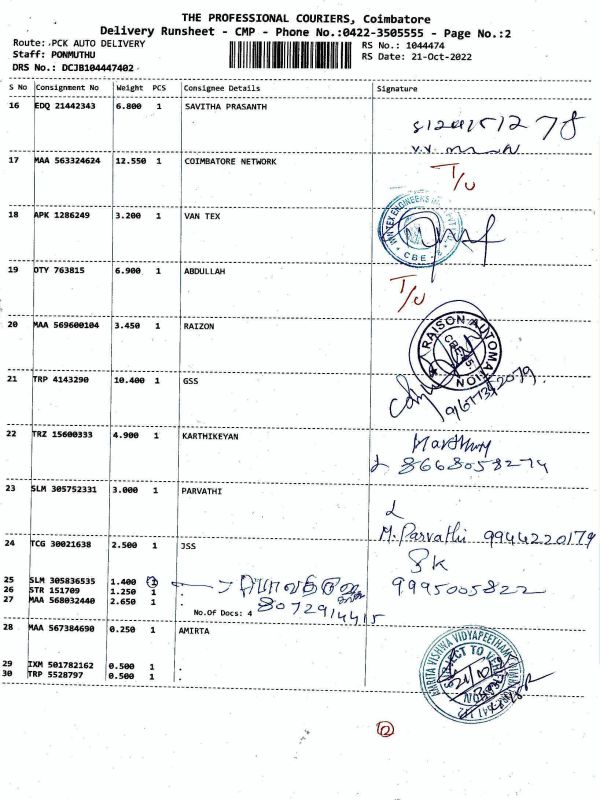 THE PROFESSIONAL COURIERS, Coimbatore
Delivery Runsheet - CMP - Phone No.:0422-3505555 - Page No.:2
Route: PCK AUTO DELIVERY RS No.: 1044474
Staff: PONMUTHU RS Date: 21-Oct-2022
DRS No.: DCJB104447402
S No Consignment No Weight PCS Consignee Details Signature
16 EDQ 21442343 6.800 1 SAVITHA PRASANTH
17 MAA 563324624 12.550 1 COIMBATORE NETWORK T/U
18 APK 1286249 3.200 1 VAN TEX
CBE
19 OTY 763815 6.900 1 ABDULLAH T/U
20 MAA 569600104 3.450 1 RAIZON
RAISON AUTOMATION
21 TRP 4143290 10.400 1 GSS
22 TRZ 15600333 4.900 1 KARTHIKEYAN
8668058274
23 SLM 305752331 3.000 1 PARVATHI
M. Parvathi 9944220179
24 TCG 30021638 2.500 1 JSS
9995005822
25 SLM 305836535 1.400 1 .
26 STR 151709 1.250 1 .
27 MAA 568032440 2.650 1 .
No.Of Docs: 4 8072914415
28 MAA 567384690 0.250 1 AMIRTA
AMRITA VISHWA VIDYAPEETHAM
29 IXM 501782162 0.500 1 .
30 TRP 5528797 0.500 1 .